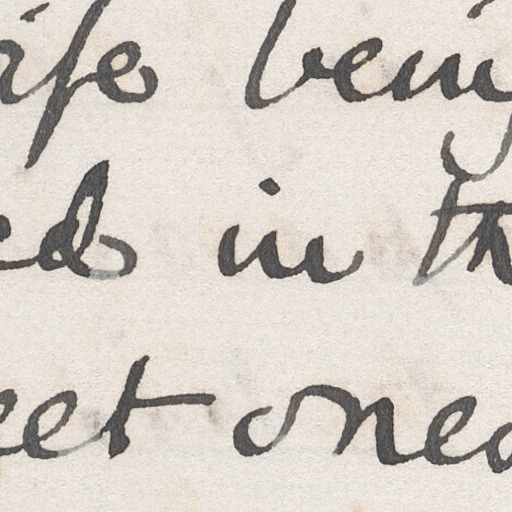 ife bein
ed in th
eet one